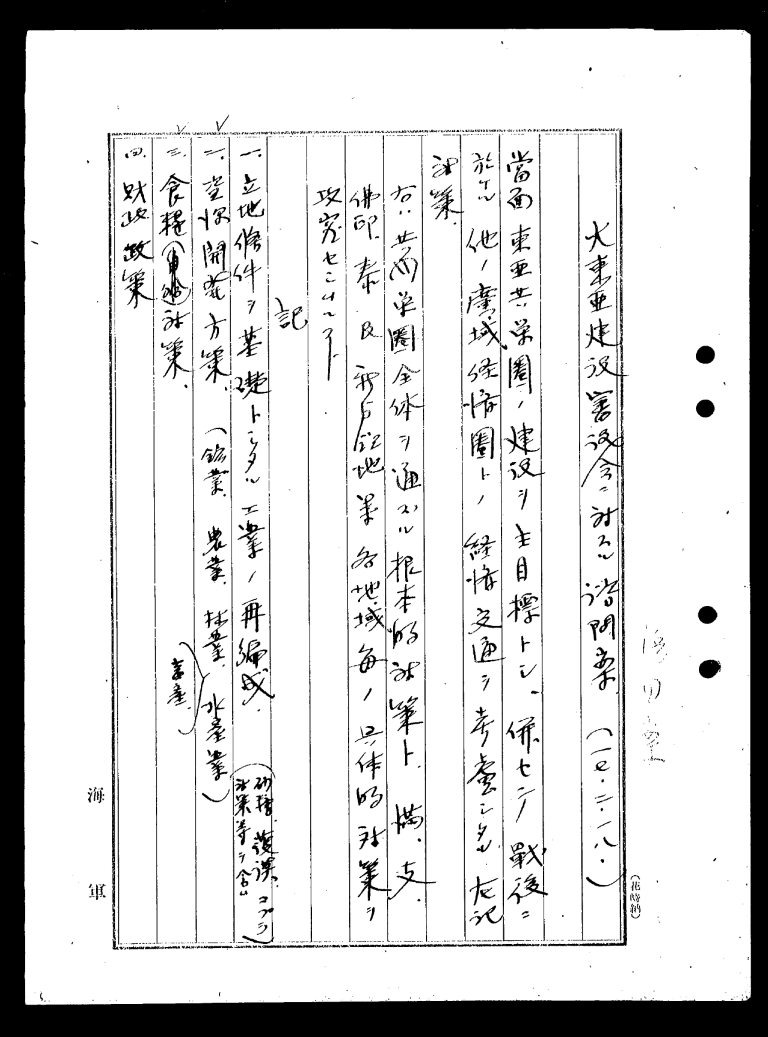 大東亜建設審議会ニ対スル諮問案 (一七・二・一八・)
當面東亜共栄圏ノ建設ヲ主目標トシ、併セテ戰後ニ
於ケル他ノ廣域経済圏トノ経済交通ヲ考慮シタル左記
対策.
右ハ共栄圏全体ヲ通ズル根本的対策ト、満、支、
佛印、泰及 地等各地域毎ノ具体的対策ヲ
攻究セシムルコト
記
一、立地條件ヲ基礎トシタル工業ノ再編成.
(砂糖、護謨、コプラ
対策等ヲ含ム)
二、資源開発方策、(鉱業、農業、林業、水産業)
畜産、
三、食糧 対策、
四、財政政策
海軍
(花崎納)